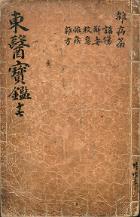 雜病篇
諸傷
解毒
救急
怪疾
雜方
東醫寶鑑